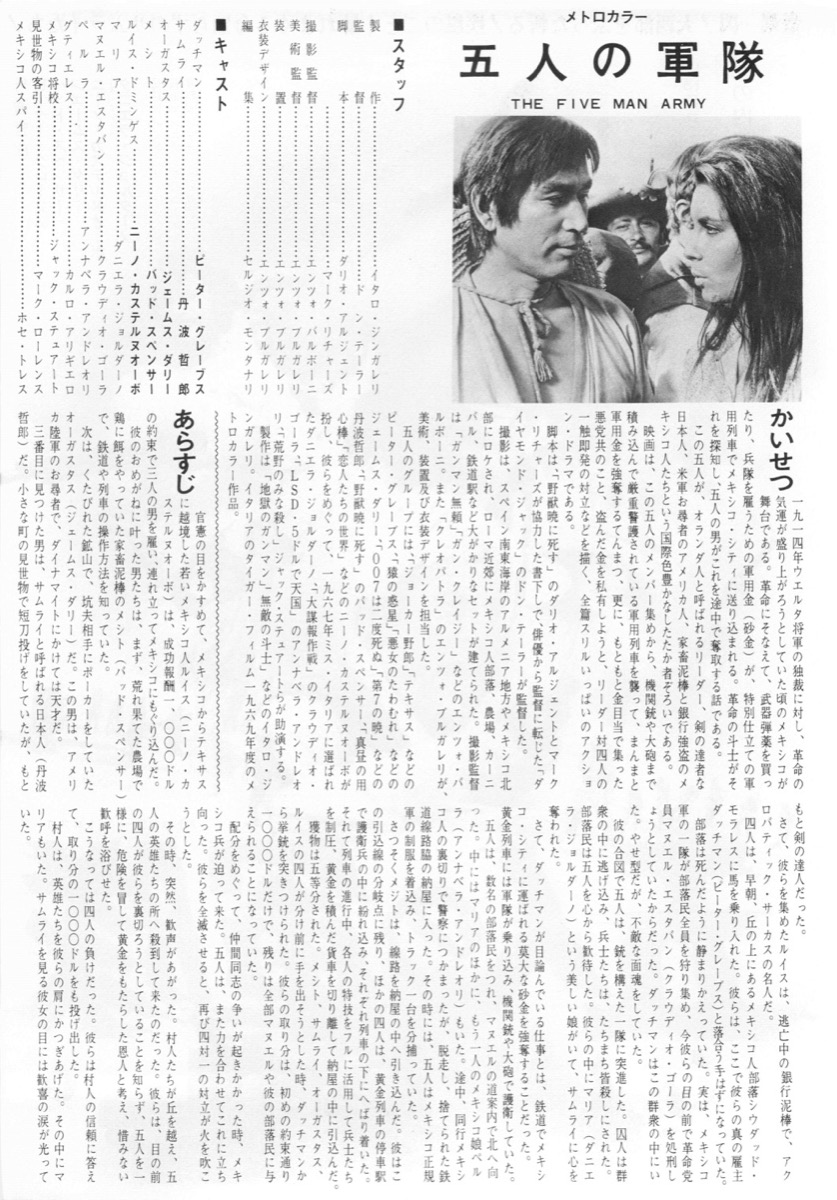 メトロカラー
五人の軍隊
THE FIVE MAN ARMY
■スタッフ
製作……イタロ・ジンガレリ
監督……ドン・テーラー
脚本……ダリオ・アルジェント
マーク・リチャーズ
撮影監督……エンツォ・バルボーニ
美術監督……エンツォ・ブルガレリ
装置……エンツォ・ブルガレリ
衣装デザイン……エンツォ・ブルガレリ
編集……セルジオ・モンタナリ
■キャスト
ダッチマン……ピーター・グレーブス
サムライ……丹波哲郎
オーガスタス……ジェームス・ダリー
メシト……バッド・スペンサー
ルイス・ドミンゲス……ニーノ・カステルヌオーボ
マリア……ダニエラ・ジョルダーノ
マヌエル・エスタバン……クラウディオ・ゴーラ
ペルラ……アンナベラ・アンドレオリ
グティエレス……カルロ・アリギエロ
メキシコ将校……ジャック・ステュアート
見世物の客引……マーク・ローレンス
メキシコ人スパイ……ホセ・トレス
かいせつ
一九一四年ウエルタ将軍の独裁に対し、革命の
気運が盛り上がろうとしていた頃のメキシコが
舞台である。革命にそなえて、武器弾薬を買っ
たり、兵隊を雇うための軍用金（砂金）が、特別仕立ての軍
用列車でメキシコ・シティに送り込まれる。革命の斗士がそ
れを探知し、五人の男がこれを途中で奪取する話である。
この五人が、オランダ人と呼ばれるリーダー、剣の達者な
日本人、米軍お尋者のアメリカ人、家畜泥棒と銀行強盗のメ
キシコ人たちという国際色豊かなしたたか者ぞろいである。
映画は、この五人のメンバー集めから、機関銃や大砲まで
積み込んで厳重警護されている軍用列車を襲って、まんまと
軍用金を強奪するてんまつ、更に、もともと金目当で集った
悪党共のこと、盗んだ金を私有しようと、リーダー対四人の
一触即発の対立などを描く、全篇スリルいっぱいのアクショ
ン・ドラマである。
脚本は、「野獣暁に死す」のダリオ・アルジェントとマーク
・リチャーズが協力した書下しで、俳優から監督に転じた「ダ
イヤモンド・ジャック」のドン・テーラーが監督した。
撮影は、スペイン南東海岸のアルメニア地方やメキシコ北
部にロケされ、ローマ近郊にメキシコ人部落、農場、カーニ
バル、鉄道駅など大がかりなセットが建てられた。撮影監督
は「ガンマン無頼」「ガン・クレイジー」などのエンツォ・バ
ルボーニ。また「クレオパトラ」のエンツォ・ブルガレリが、
美術、装置及び衣装デザインを担当した。
五人のグループには、「ジョーカー野郎」「テキサス」などの
ピーター・グレーブス、「猿の惑星」「悪女のたわむれ」などの
ジェームス・ダリー、「００７は二度死ぬ」「第７の暁」などの
丹波哲郎、「野獣暁に死す」のバッド・スペンサー、「真昼の用
心棒」「恋人たちの世界」などのニーノ・カステルヌオーボが
扮し、彼らをめぐって、一九六七年ミス・イタリアに選ばれ
たダニエラ・ジョルダーノ、「大諜報作戦」のクラウディオ・
ゴーラ、「ＬＳＤ・５ドルで天国」のアンナベラ・アンドレオ
リ、「荒野のみな殺し」ジャック・ステュアートらが助演する。
製作は、「地獄のガンマン」「無敵の斗士」などのイタロ・ジ
ンガレリ。イタリアのタイガー・フィルム一九六九年度のメ
トロカラー作品。
あらすじ
官憲の目をかすめて、メキシコからテキサス
に越境した若いメキシコ人ルイス（ニーノ・カ
ステルヌオーボ）は、成功報酬一、〇〇〇ドル
の約束で三人の男を雇い、連れ立ってメキシコにもぐり込んだ。
彼のおめがねに叶った男たちは、まず、荒れ果てた農場で
鶏に餌をやっていた家畜泥棒のメシト（バッド・スペンサー）
で、鉄道や列車の操作方法を知っていた。
次は、くたびれた鉱山で、坑夫相手にポーカーをしていた
オーガスタス（ジェームス・ダリー）だ。この男は、アメリ
カ陸軍のお尋者で、ダイナマイトにかけては天才だ。
三番目に見つけた男は、サムライと呼ばれる日本人（丹波
哲郎）だ。小さな町の見世物で短刀投げをしていたが、もと
もと剣の達人だった。
さて、彼らを集めたルイスは、逃亡中の銀行泥棒で、アク
ロバティック・サーカスの名人だ。
四人は、早朝、丘の上にあるメキシコ人部落シウダッド・
モラレスに馬を乗り入れた。彼らは、ここで彼らの真の雇主
ダッチマン（ピーター・グレーブス）と落合う手はずになっていた。
部落は死んだように静まりかえっていた。実は、メキシコ
軍の一隊が部落民全員を狩り集め、今彼らの目の前で革命党
員マヌエル・エスタバン（クラウディオ・ゴーラ）を処刑し
ようとしていたからだった。ダッチマンはこの群衆の中にい
た。やせ型だが、不敵な面魂をしていた。
彼の合図で五人は、銃を構えた一隊に突進した。囚人は群
衆の中に逃げ込み、兵士たちは、たちまち皆殺しにされた。
部落民は五人を心から歓待した。彼らの中にマリア（ダニエ
ラ・ジョルダーノ）という美しい娘がいて、サムライに心を
奪われた。
さて、ダッチマンが目論んでいる仕事とは、鉄道でメキシ
コ・シティに運ばれる莫大な砂金を強奪することだった。
黄金列車には軍隊が乗り込み、機関銃や大砲で護衛していた。
五人は、数名の部落民をつれ、マヌエルの道案内で北へ向
った。中にはマリアのほかに、もう一人のメキシコ娘ペル
ラ（アンナベラ・アンドレオリ）もいた。途中、同行メキシ
コ人の裏切りで警察につかまったが、脱走し、捨てられた鉄
道線路脇の納屋に入った。その時には、五人はメキシコ正規
軍の制服を着込み、トラック一台を分捕っていた。
さつそくメジトは、線路を納屋の中へ引き込んだ。彼はこ
の引込線の分岐点に残り、ほかの四人は、黄金列車の停車駅
で護衛兵の中に紛れ込み、それぞれ列車の下にへばり着いた。
それて列車の進行中、各人の特技をフルに活用して兵士たち
を制圧、黄金を積んだ貨車を切り離して納屋の中に引込んだ。
獲物は五等分された。メシト、サムライ、オーガスタス、
ルイスの四人が分け前に手を出そうとした時、ダッチマンか
ら挙銃を突きつけられた。彼らの取り分は、初めの約束通り
一〇〇〇ドルだけで、残りは全部マヌエルや彼の部落民に与
えられることになっていた。
配分をめぐって、仲間同志の争いが起きかかった時、メキ
シコ兵が迫って来た。五人は、また力を合わせてこれに立ち
向った。彼らを全滅させると、再び四対一の対立が火を吹こ
うとした。
その時、突然、歓声があがった。村人たちが丘を越え、五
人の英雄たちの所へ殺到して来たのだった。彼らは、目の前
の四人が彼らを裏切ろうとしていることを知らず、五人を一
様に、危険を冒して黄金をもたらした恩人と考え、惜みない
歓呼を浴びせた。
こうなっては四人の負けだった。彼らは村人の信頼に答え
て、取り分の一〇〇〇ドルをも投げ出した。
村人は、英雄たちを彼らの肩にかつぎあげた。その中にマ
リアもいた。サムライを見る彼女の目には歓喜の涙が光って
いた。